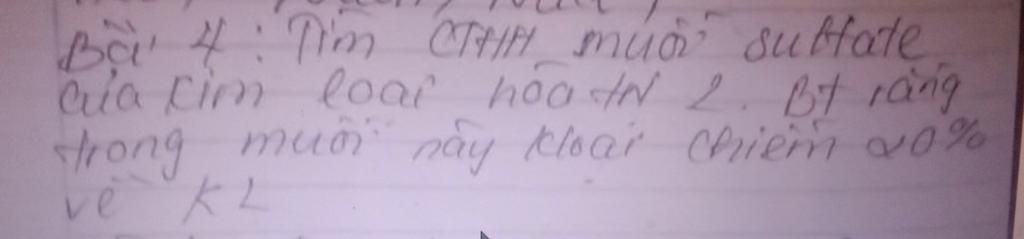 Bài 4: Tìm CTHH muối sulfate
của kim loại hóa trị 2. Bt rằng
trong muối này kloại chiếm 20%
về KL